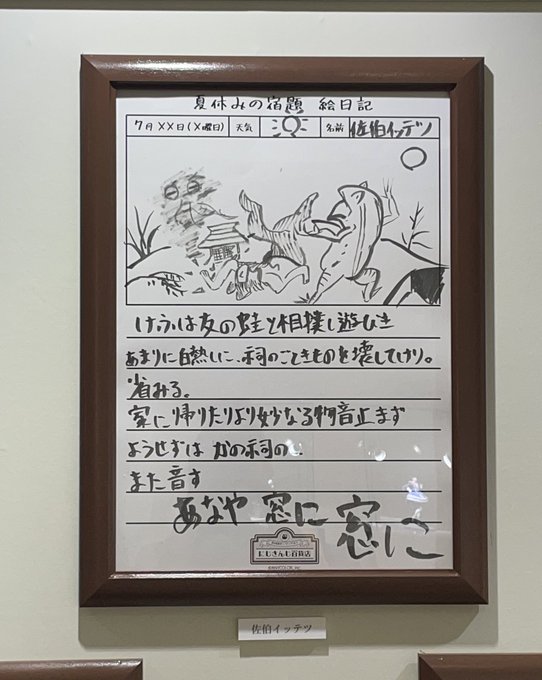 夏休みの宿題 絵日記
7月××日(×曜日) 天気 名前 佐伯イッテツ
けふは友の蛙と相撲し遊びき
あまりに白熱しに、祠のごときものを壊してけり。
省みる。
家に帰りたりより妙なる物音止まず
ようせずは かの祠の、
また音す
あなや 窓に 窓に
にじさんじ百貨店
©ANYCOLOR, Inc.
佐伯イッテツ